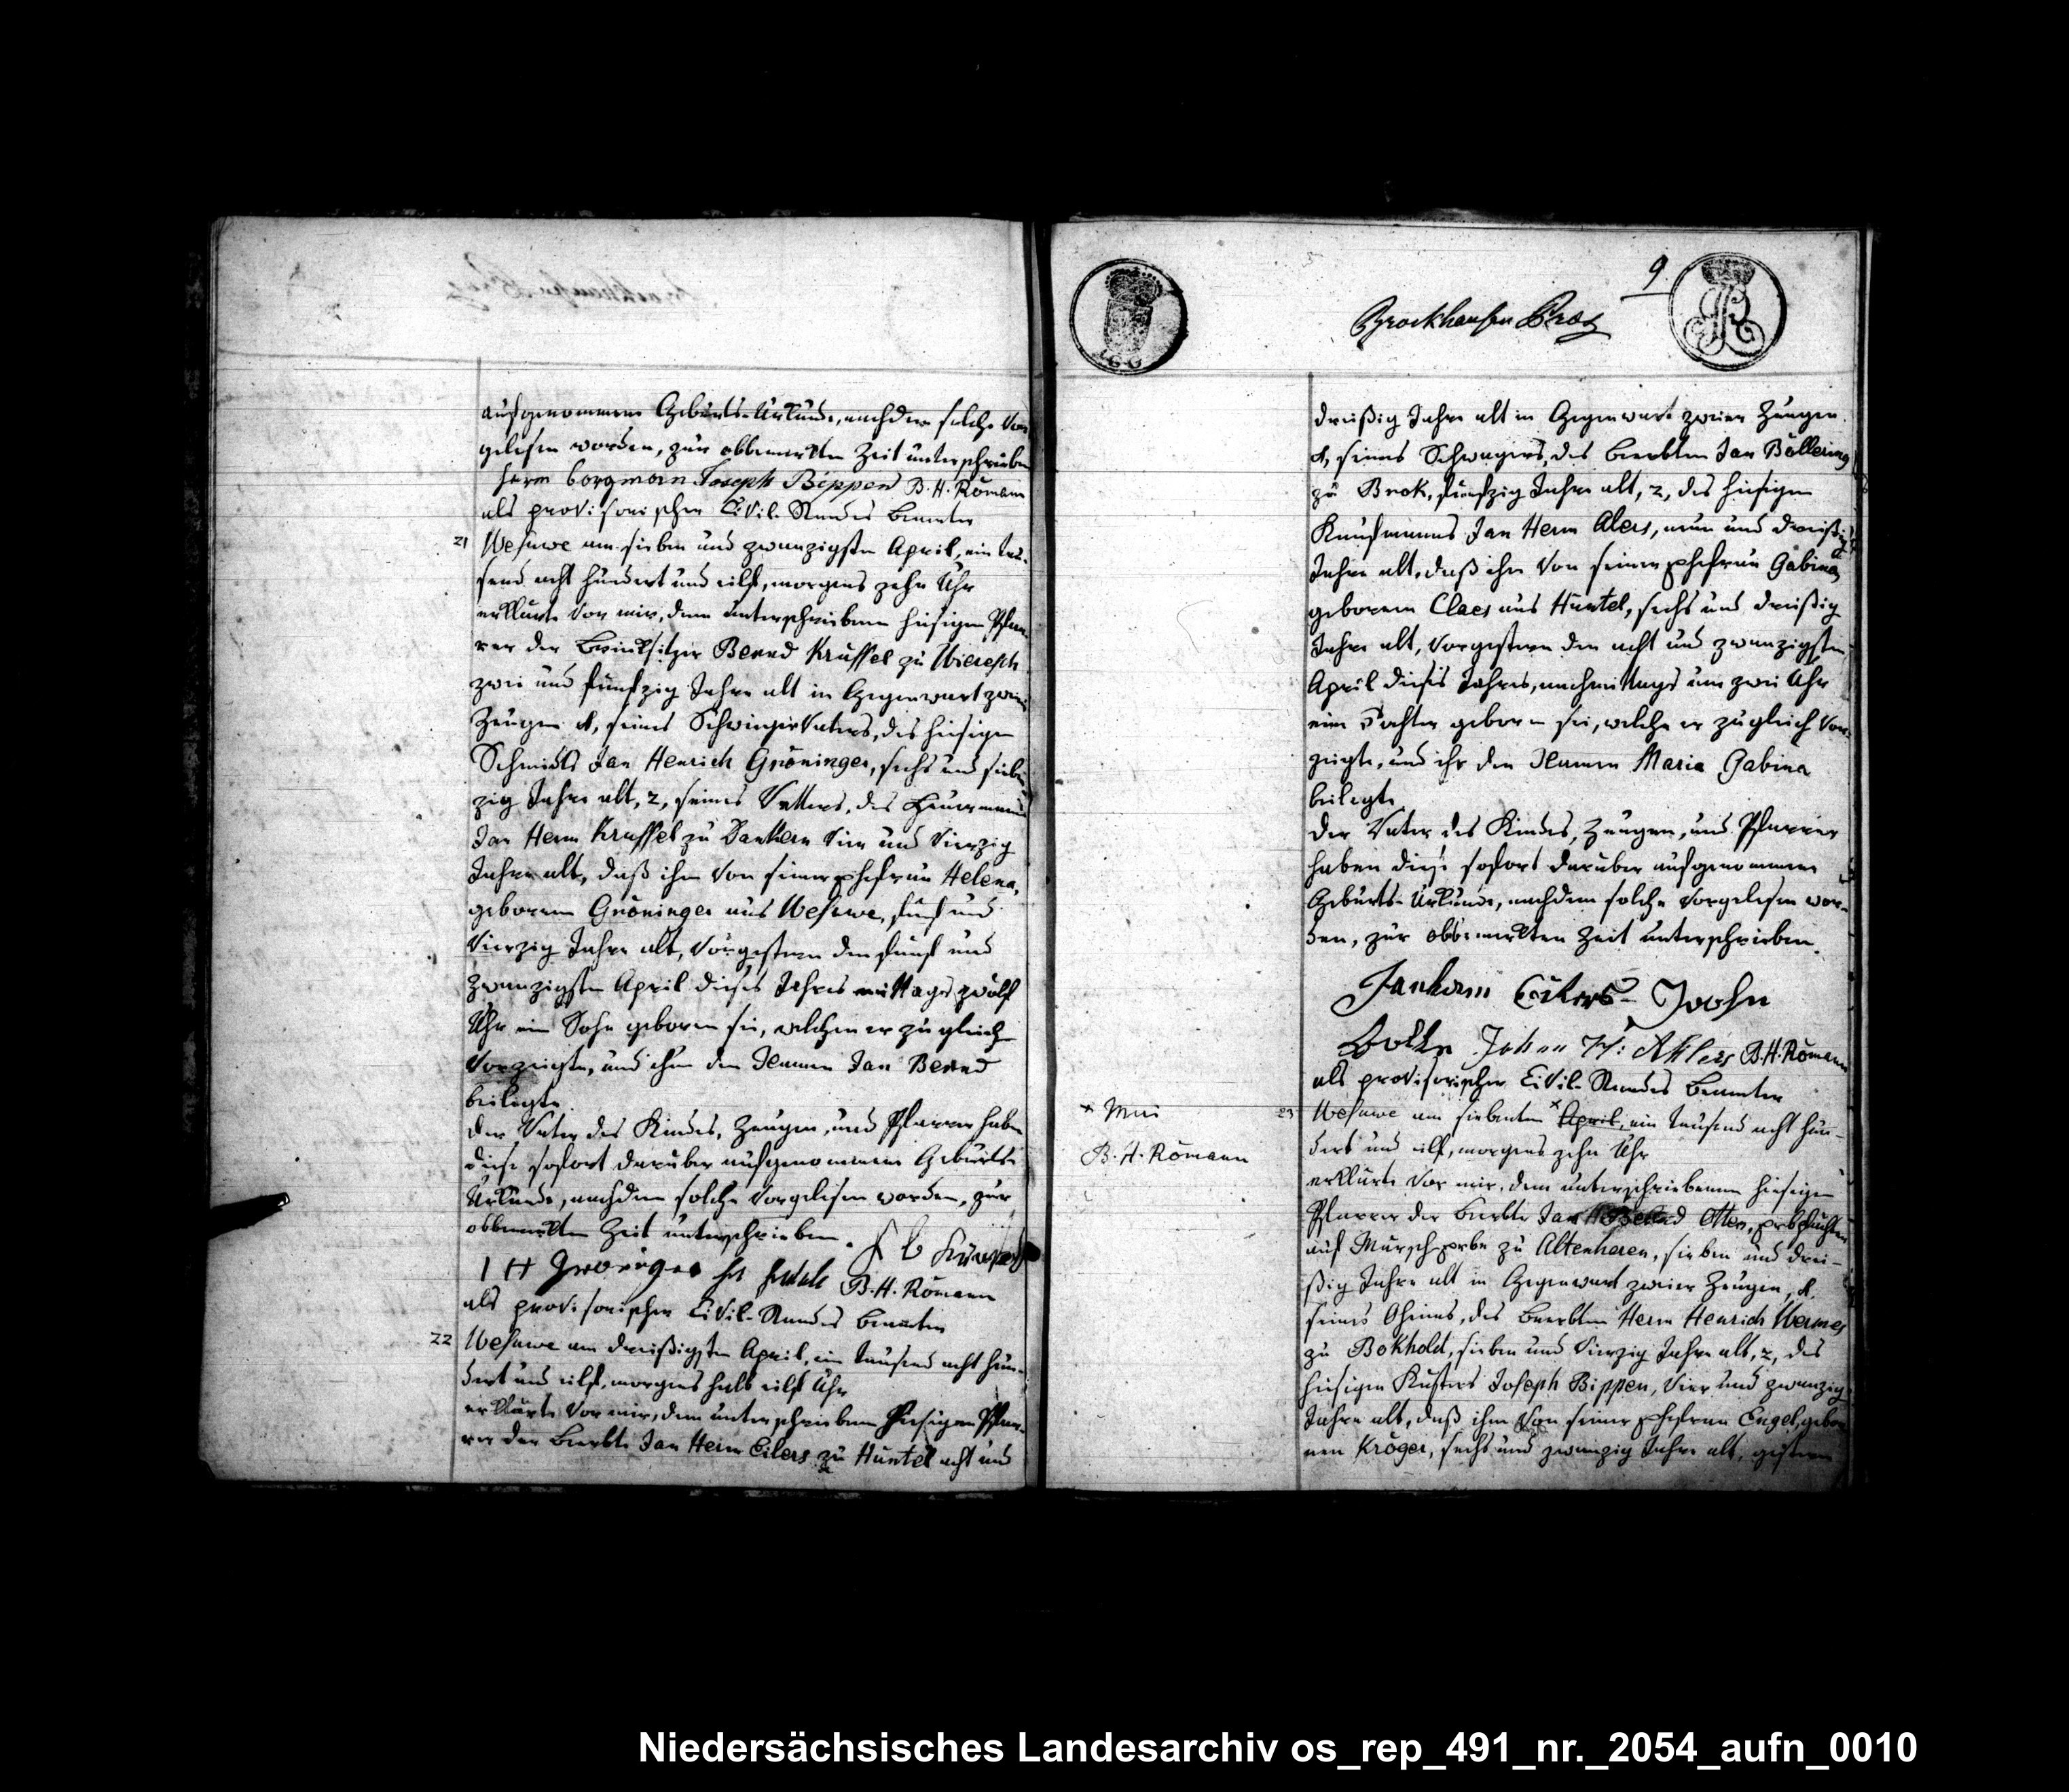 aufgenommene Geburts-Urkunde, nachdem solche vor-
gelesen worden, zur obbemerkten Zeit unterschrieben
Herm borgman Joseph Bippen B. H. Römann
als provisorischer Civil-Standes Beamter
21 Wesuwe am sieben und zwanzigsten April, ein tau-
send acht hundert und eilf, morgens zehn Uhr
erklärte vor mir, dem unterschriebenen hiesigen Pfar-
rer der Brinksitzer Bernd Krüssel zu
zwei und fünfzig Jahre alt in Gegenwart zweier
Zeugen 1, seines Schwiegervaters, des hiesigen
Schmidts Jan Henrich Gröninger, sechs und sieben-
zig Jahre alt, 2, seines Vetters, des Heuermanns
Jan Herm Krüssel zu Dankern vier und vierzig
Jahre alt, daß ihm von seiner Ehefrau Helena,
geborenen Gröninger aus Wesuwe, fünf und
vierzig Jahre alt, vorgestern den fünf und
zwanzigsten April dieses Jahres mittags zwölf
Uhr ein Sohn geboren sei, welchen er zugleich
vorzeigte, und ihm den Namen Jan Bernd
beilegte
Der Vater des Kindes, Zeugen, und Pfarrer haben
diese sofort darüber aufgenommene Geburts-
Urkunde, nachdem solche vorgelesen worden, zur
obbemerkten Zeit unterschrieben.
B. H. Römann
als provisorischer Civil-Standes Beamter
22 Wesuwe am dreißigsten April, ein tausend acht hun-
dert und eilf, morgens halb eilf Uhr
erklärte vor mir, dem unterschriebenen hiesigen Pfar-
rer der Beerbte Jan Herm Eilers zu Huntel acht und
9
Brockhausen
dreißig Jahre alt in Gegenwart zweier Zeugen
1, seines Schwagers, des Beerbten Jan Böllering
zu Brok, fünfzig Jahre alt, 2, des hiesigen
Kaufmanns Jan Herm Alers, neun und dreißig
Jahre alt, daß ihm von seiner Ehefrau Gabina
geborenen Claes aus Huntel, sechs und dreißig
Jahre alt, vorgestern den acht und zwanzigsten
April dieses Jahres, nachmittags um zwei Uhr
eine Tochter geboren sei, welche er zugleich vor-
zeigte, und ihr den Namen Maria Gabina
beilegte
Der Vater des Kindes, Zeugen, und Pfarrer
haben diese sofort darüber aufgenommene
Geburts-Urkunde, nachdem solche vorgelesen wor-
den, zur obbemerkten Zeit unterschrieben.
Janherm Eilers
Johan H: Ahlers B. H. Römann
als provisorischer Civil-Standes Beamter
× Mai
B. H. Römann
23 Wesuwe am siebenten × April, ein tausend acht hun-
dert und eilf, morgens zehn Uhr
erklärte vor mir, dem unterschriebenen hiesigen
Pfarrer der Beerbte Jan Bernd Otten,
auf Marsch Erbe zu Altenharen, sieben und drei-
ßig Jahre alt in Gegenwart zweier Zeugen, 1.
seines Oheims, des Beerbten Herm Henrich Wermes
zu Bokholt, sieben und vierzig Jahre alt, 2, des
hiesigen Küsters Joseph Bippen, vier und zwanzig
Jahre alt, daß ihm von seiner Ehefrau Engel, gebor-
nen Kröger, sechs und zwanzig Jahre alt, gestern
Niedersächsisches Landesarchiv os_rep_491_nr._2054_aufn_0010